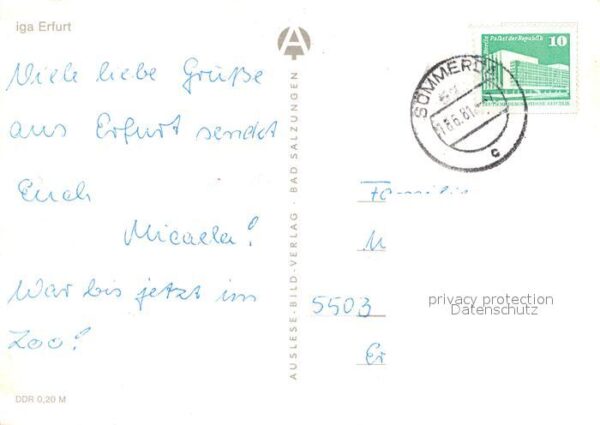 iga Erfurt
Viele liebe Grüße
aus Erfurt sendet
Euch
Micaela!
War bis jetzt im
Zoo!
DDR 0,20 M
AUSLESE-BILD-VERLAG · BAD SALZUNGEN
A
Berlin Palast der Republik 10
DEUTSCHE DEMOKRATISCHE REPUBLIK
SÖMMERDA
18.6.81
c
Familie
M
5503
Er
privacy protection
Datenschutz